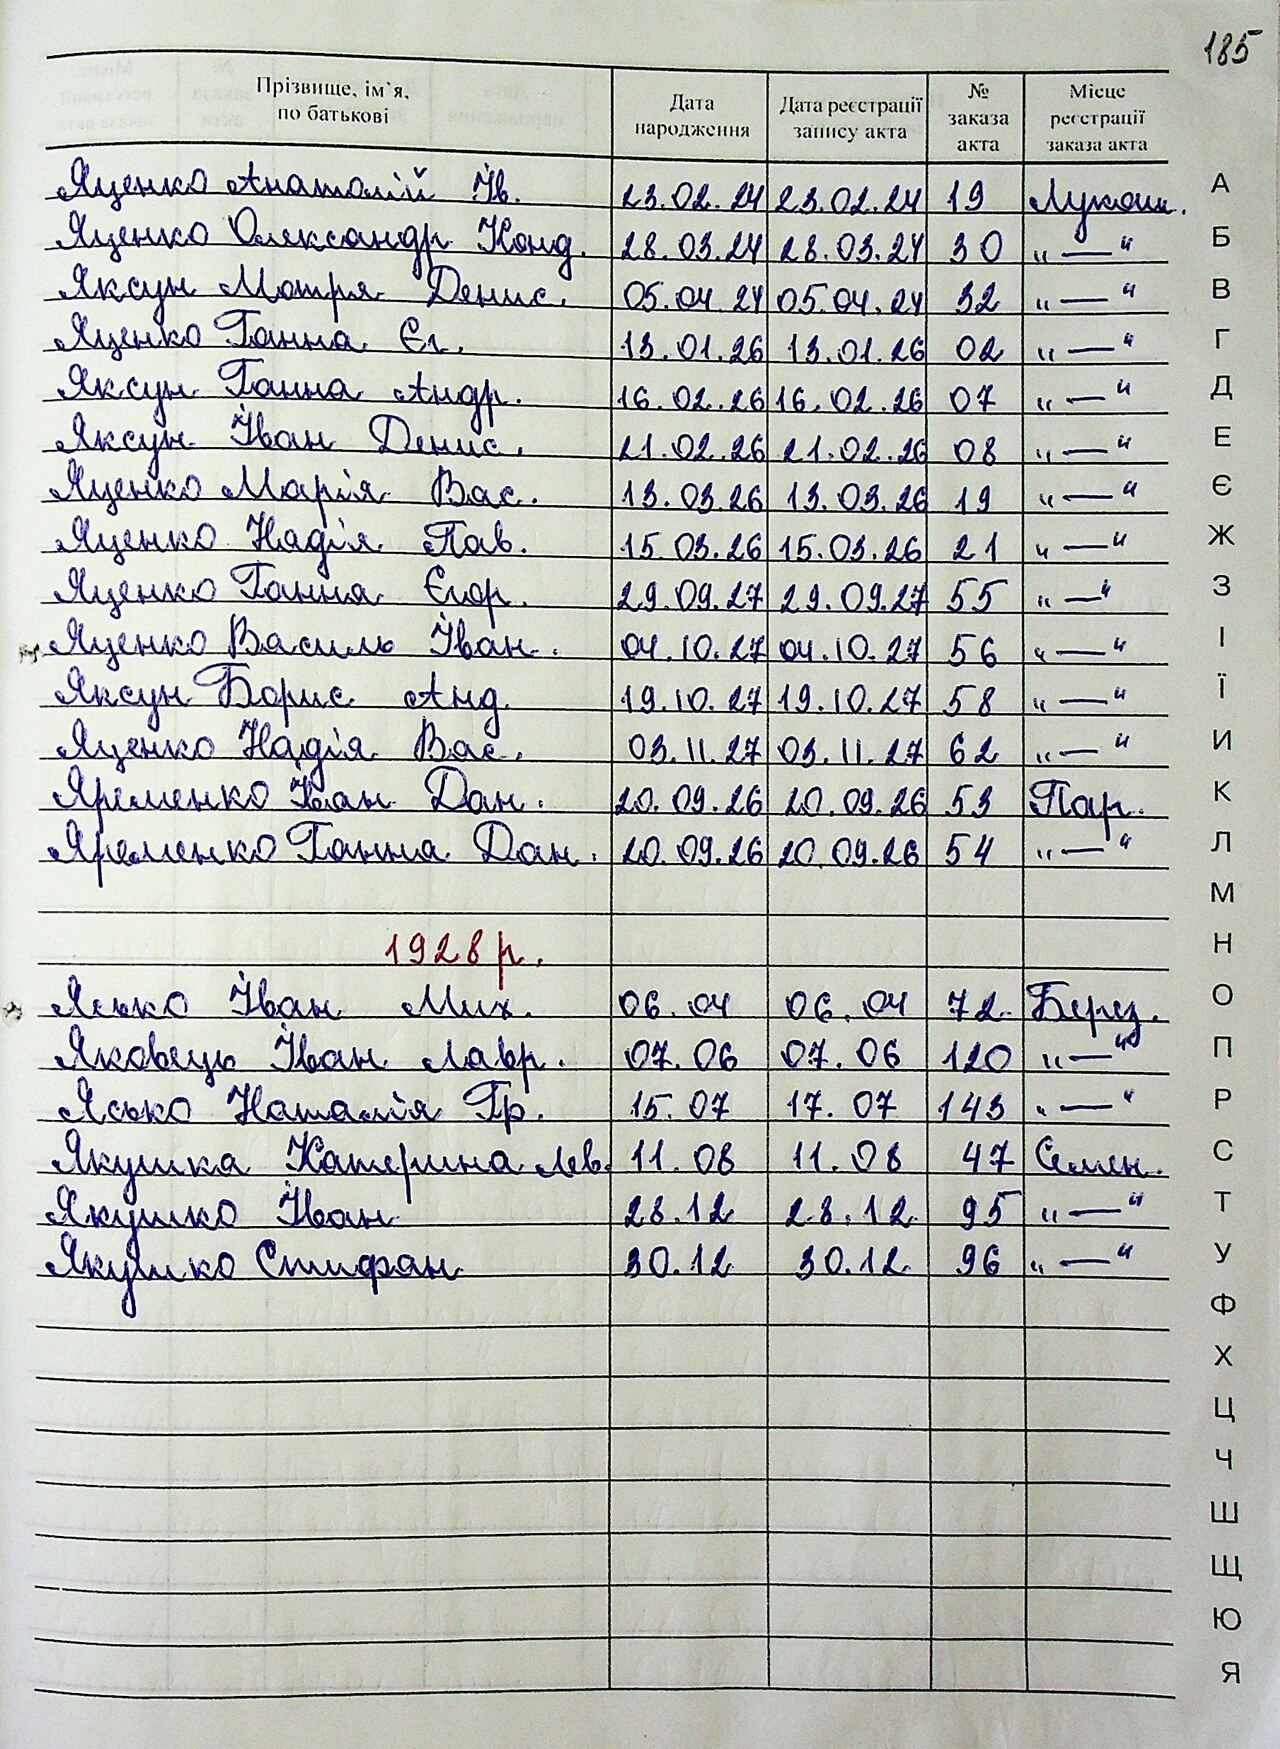 185
Прізвище, ім`я, по батькові Дата народження Дата реєстрації запису акта № заказа акта Місце реєстрації заказа акта
Яценко Анатолій Ів. 23.02.24 23.02.24 19 Лукаш. А
Яценко Олександр Конд. 28.03.24 28.03.24 30 „—“ Б
Яксун Мотря Денис. 05.04.24 05.04.24 32 „—“ В
Яценко Ганна Єг. 13.01.26 13.01.26 02 „—“ Г
Яксун Ганна Андр. 16.02.26 16.02.26 07 „—“ Д
Яксун Іван Денис. 21.02.26 21.02.26 08 „—“ Е
Яценко Марія Вас. 13.03.26 13.03.26 19 „—“ Є
Яценко Надія Пав. 15.03.26 15.03.26 21 „—“ Ж
Яценко Ганна Єгор. 29.09.27 29.09.27 55 „—“ З
Яценко Василь Іван. 04.10.27 04.10.27 56 „—“ І
Яксун Борис Анд. 19.10.27 19.10.27 58 „—“ Ї
Яценко Надія Вас. 03.11.27 03.11.27 62 „—“ И
Яременко Іван Дан. 20.09.26 20.09.26 53 Пар. К
Яременко Ганна Дан. 20.09.26 20.09.26 54 „—“ Л
М
1928 р. Н
Ясько Іван Мих. 06.04 06.04 72 Берез. О
Яковець Іван Лавр. 07.06 07.06 120 „—“ П
Ясько Наталія Гр. 15.07 17.07 143 „—“ Р
Якушка Катерина Лев. 11.08 11.08 47 Семен. С
Якушко Іван 28.12 28.12 95 „—“ Т
Якушко Стифан 30.12 30.12 96 „—“ У
Ф
Х
Ц
Ч
Ш
Щ
Ю
Я